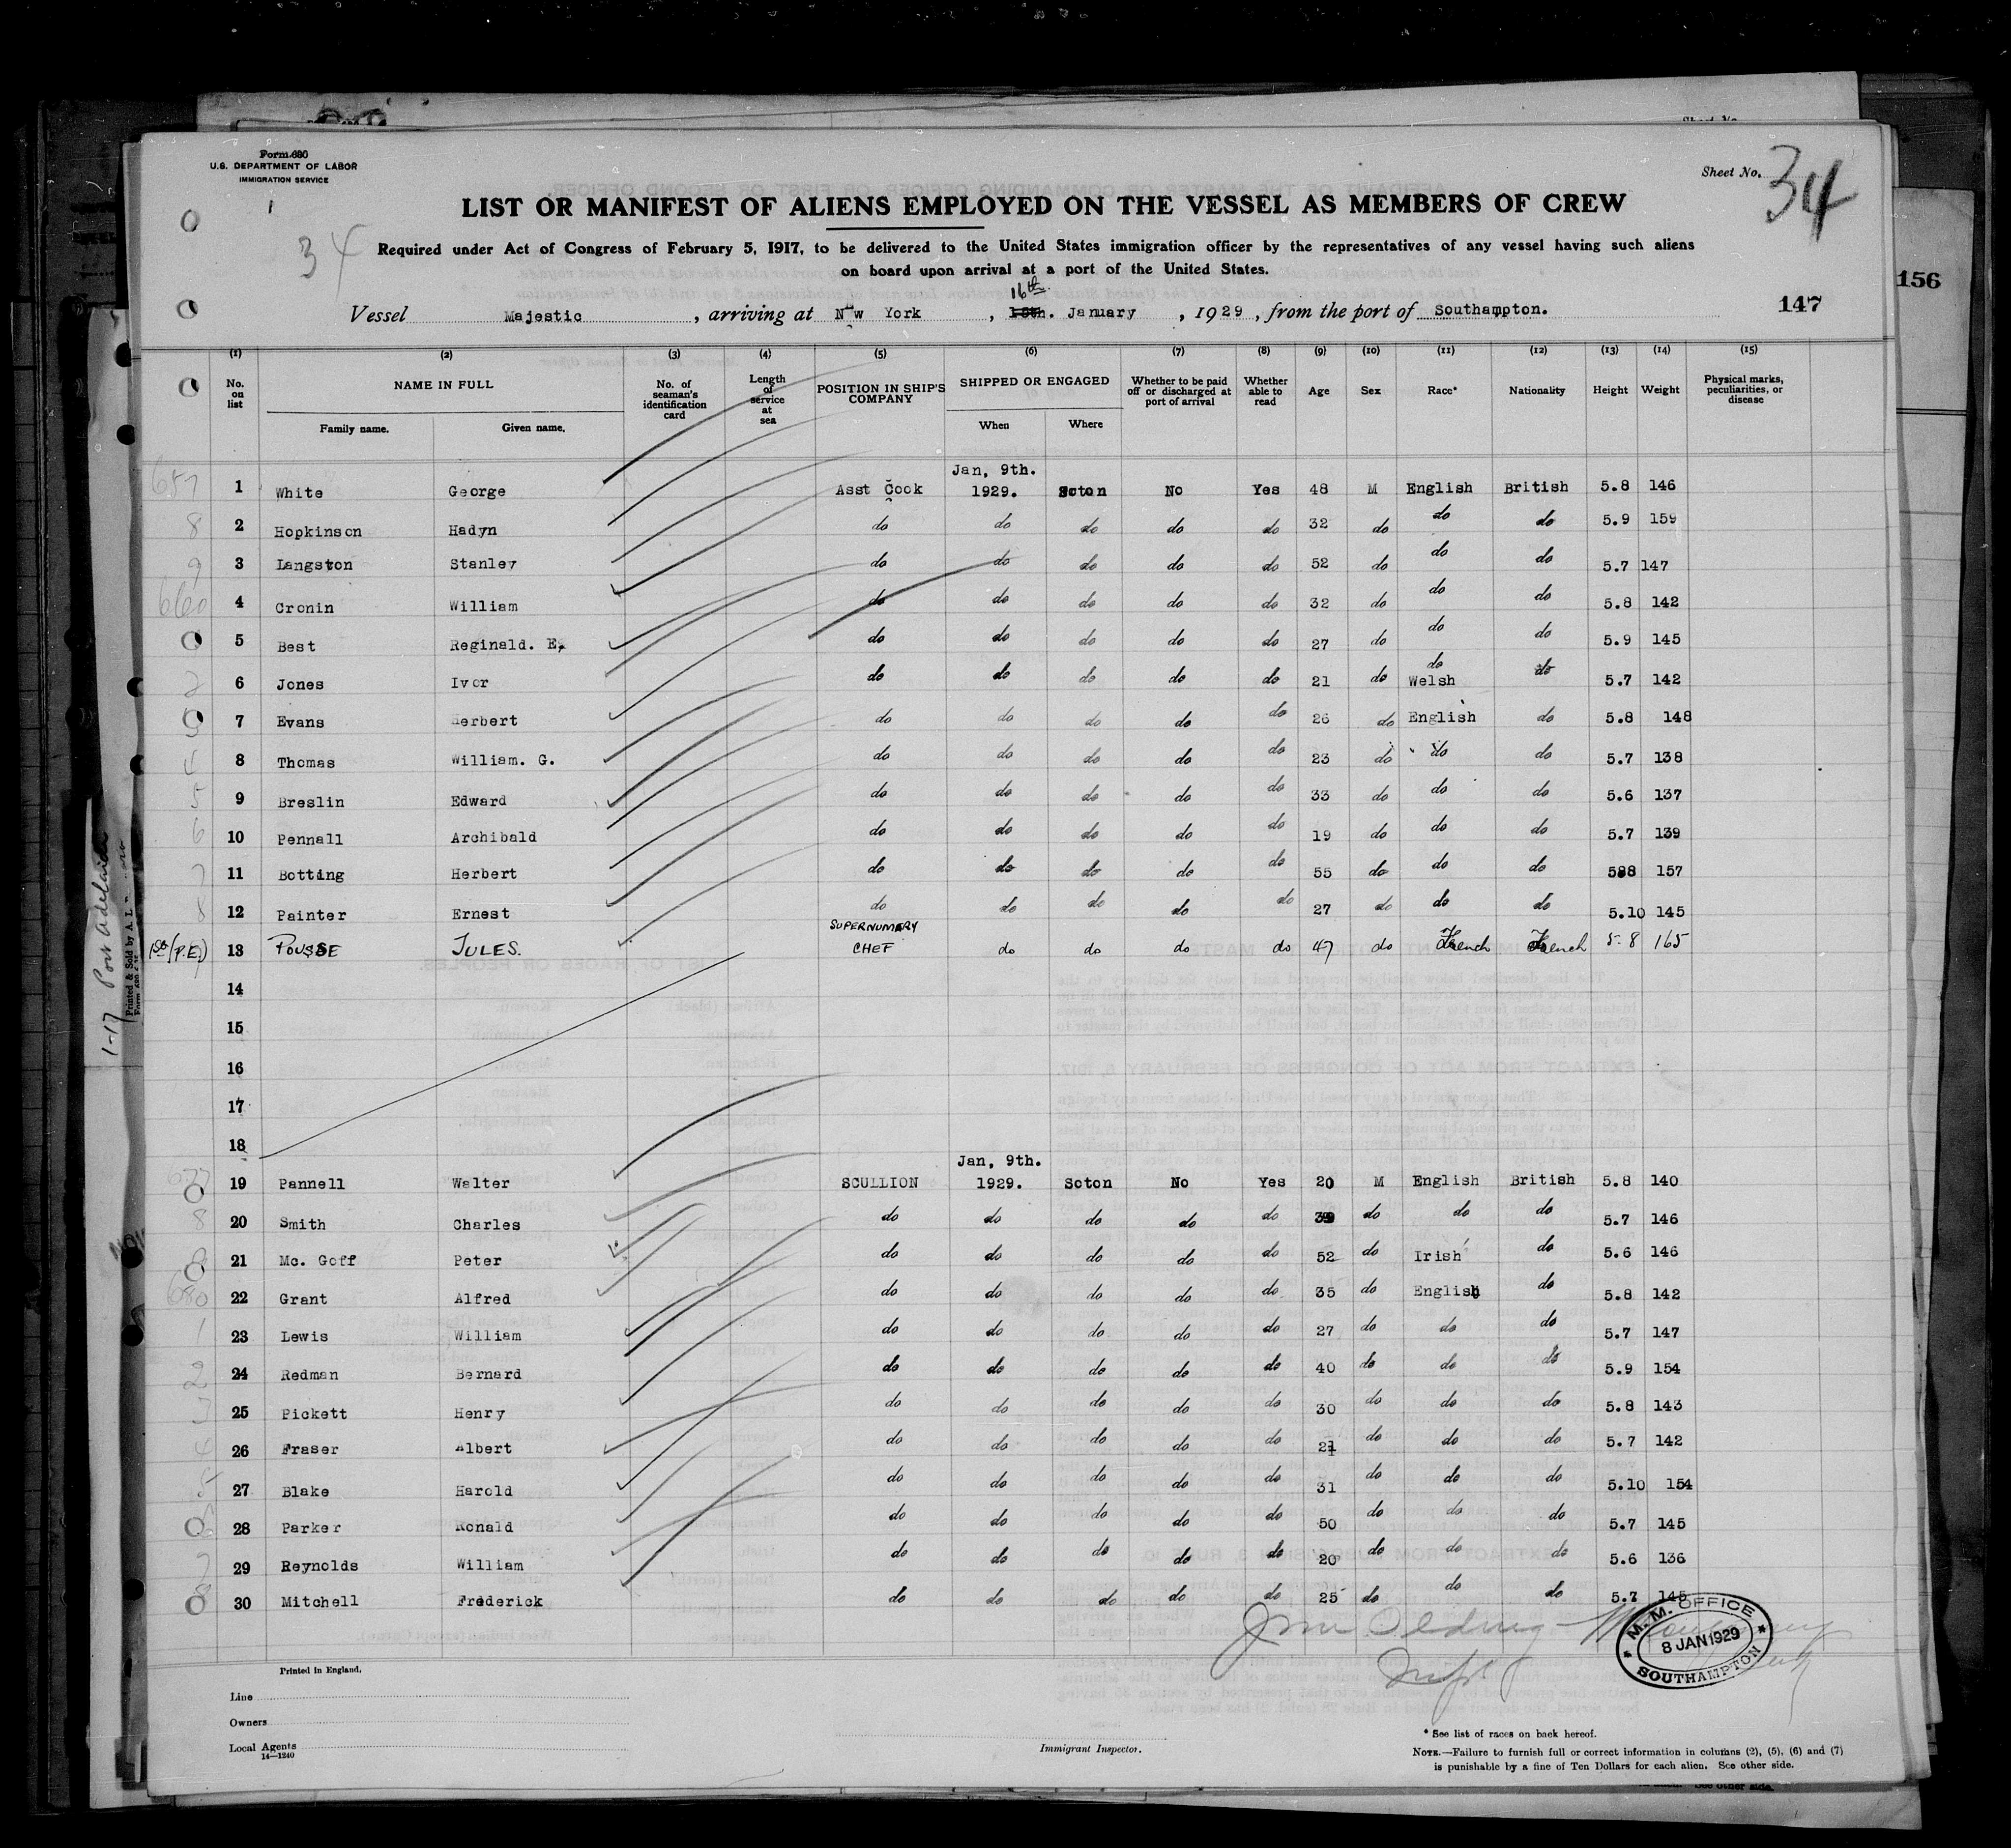 Form 680
U.S. DEPARTMENT OF LABOR
IMMIGRATION SERVICE
Sheet No. 34
34
LIST OR MANIFEST OF ALIENS EMPLOYED ON THE VESSEL AS MEMBERS OF CREW
Required under Act of Congress of February 5, 1917, to be delivered to the United States immigration officer by the representatives of any vessel having such aliens
on board upon arrival at a port of the United States.
16th
Vessel Majestic, arriving at New York, 15th. January, 1929, from the port of Southampton.
147
156
(1) (2) (3) (4) (5) (6) (7) (8) (9) (10) (11) (12) (13) (14) (15)
No. on list NAME IN FULL No. of seaman's identification card Length of service at sea POSITION IN SHIP'S COMPANY SHIPPED OR ENGAGED Whether to be paid off or discharged at port of arrival Whether able to read Age Sex Race* Nationality Height Weight Physical marks, peculiarities, or disease
Family name. Given name. When Where
Jan, 9th.
657 1 White George Asst Cook 1929. Soton No Yes 48 M English British 5.8 146
8 2 Hopkinson Hadyn do do do do do 32 do do do 5.9 159
9 3 Langston Stanley do do do do do 52 do do do 5.7 147
660 4 Cronin William do do do do do 32 do do do 5.8 142
5 Best Reginald. E. do do do do do 27 do do do 5.9 145
do
2 6 Jones Ivor do do do do do 21 do Welsh do 5.7 142
3 7 Evans Herbert do do do do do 26 do English do 5.8 148
4 8 Thomas William. G. do do do do do 23 do do do 5.7 138
5 9 Breslin Edward do do do do do 33 do do do 5.6 137
6 10 Pennall Archibald do do do do do 19 do do do 5.7 139
7 11 Botting Herbert do do do do do 55 do do do 588 157
8 12 Painter Ernest do do do do do 27 do do do 5.10 145
SUPERNUMERY
1st (P.E.) 13 POUSSE JULES. CHEF do do do do 47 do French French 5.8 165
14
15
16
17
18
Jan, 9th.
677 19 Pannell Walter SCULLION 1929. Soton No Yes 20 M English British 5.8 140
8 20 Smith Charles do do do do do 39 do do do 5.7 146
9 21 Mc. Goff Peter do do do do do 52 do Irish do 5.6 146
680 22 Grant Alfred do do do do do 35 do English do 5.8 142
1 23 Lewis William do do do do do 27 do do do 5.7 147
2 24 Redman Bernard do do do do do 40 do do do 5.9 154
3 25 Pickett Henry do do do do do 30 do do do 5.8 143
4 26 Fraser Albert do do do do do 21 do do do 5.7 142
5 27 Blake Harold do do do do do 31 do do do 5.10 154
6 28 Parker Ronald do do do do do 50 do do do 5.7 145
7 29 Reynolds William do do do do do 20 do do do 5.6 136
8 30 Mitchell Frederick do do do do do 25 do do do 5.7 145
M.M. OFFICE
8 JAN 1929
SOUTHAMPTON
Printed in England.
Line
Owners
Local Agents
14—1240
Immigrant Inspector.
* See list of races on back hereof.
NOTE.—Failure to furnish full or correct information in columns (2), (5), (6) and (7)
is punishable by a fine of Ten Dollars for each alien. See other side.
See other side.
Printed & Sold by A. L
1-17